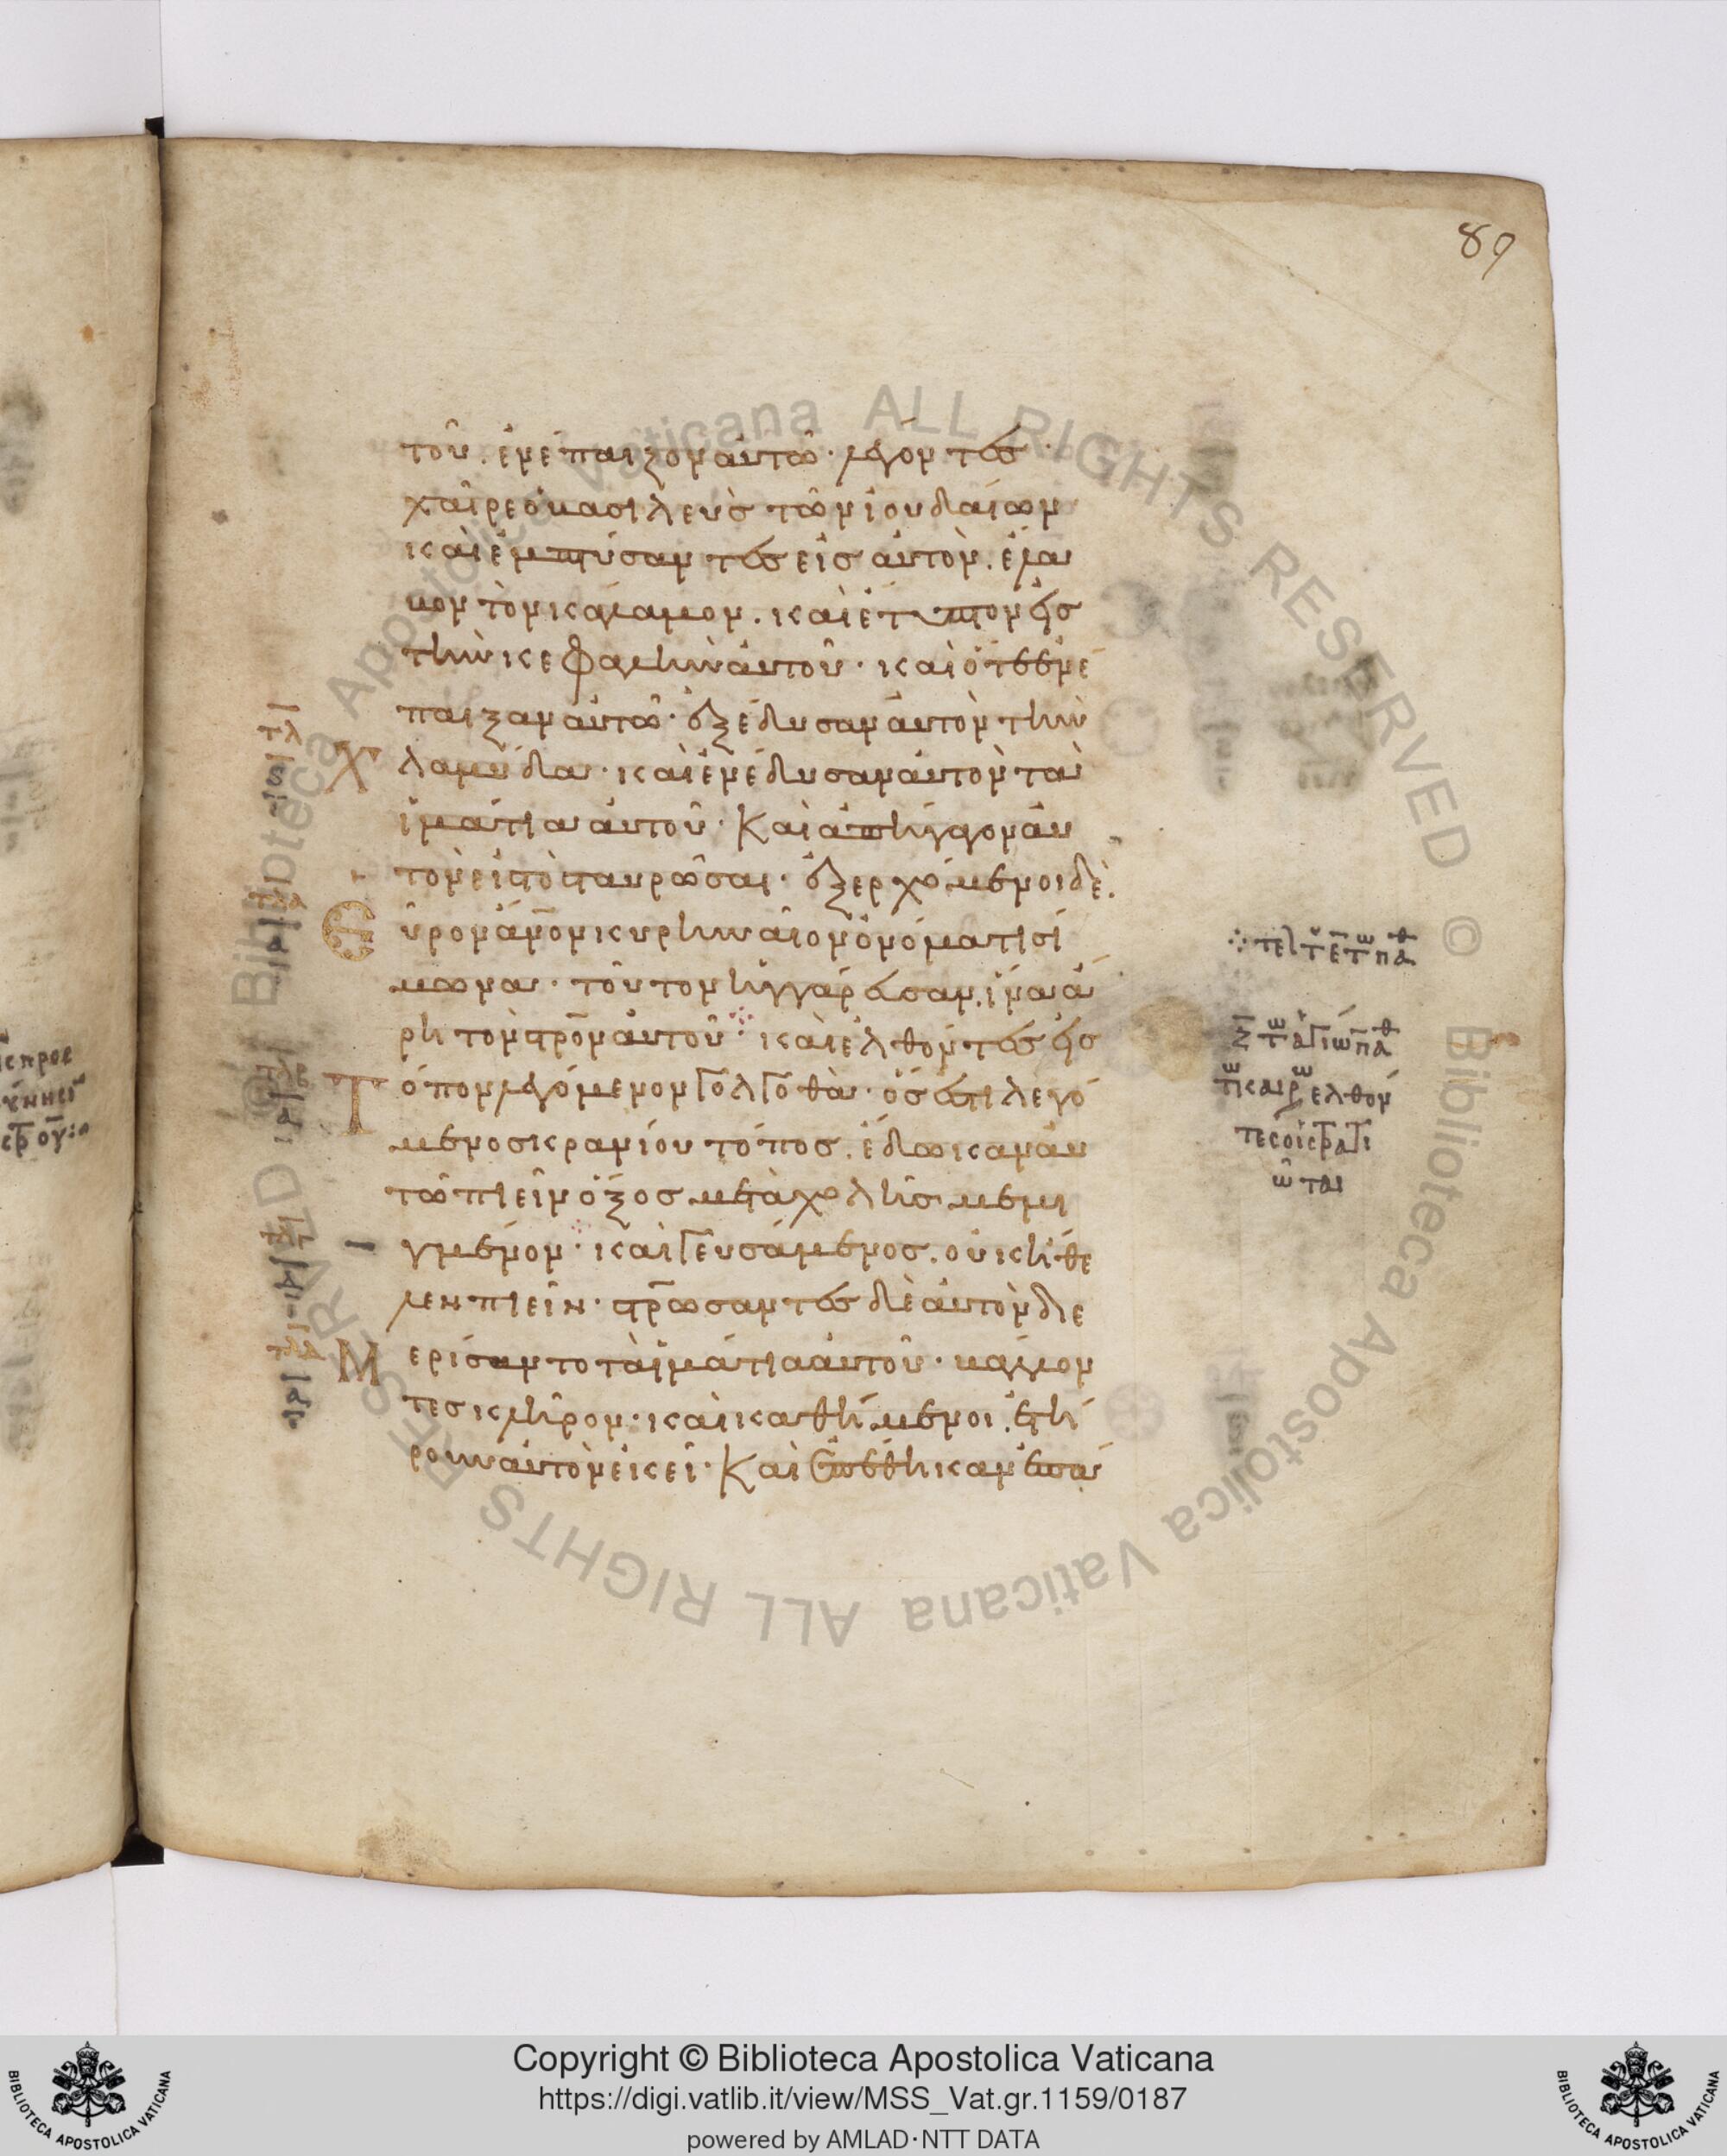 89
τοῦ. ἐνέπαιζον αὐτῶ· λέγοντες·
χαῖρε ὁ βασιλεὺς τῶν ἰουδαίων
καὶ ἐμπτύσαντες εἰς αὐτὸν. ἔλα
βον τὸν κάλαμον. καὶ ἔτυπτον εἰς
τὴν κεφαλὴν αὐτοῦ· καὶ ὅτε ἐνέ
παιξαν αὐτῶ· ἐξέδυσαν αὐτὸν τὴν
χλαμύδα· καὶ ἐνέδυσαν αὐτὸν τὰ
ἱμάτια αὐτοῦ· Καὶ ἀπήγαγον αὐ
τὸν εἰς τὸ σταυρῶσαι· ἐξερχόμενοι δὲ.
εὗρον ἄνον κυρηναῖον ὀνόματι σί
μωνα· τοῦτον ἠγγάρευσαν, ἵνα ἄ
ρη τὸν στρον αὐτοῦ· καὶ ἐλθόντες εἰς
τόπον λεγόμενον γολγοθὰ· ὅς ἐστι λεγό
μενος κρανίου τόπος. ἔδωκαν αὐ
τῶ πιεῖν ὄξος μετὰ χολῆς μεμι
γμένον· καὶ γευσάμενος. οὐκ ἤθε
λεν πιεῖν· στρώσαντες δὲ αὐτὸν διε
μερίσαντο τὰ ἱμάτια αὐτοῦ· βάλλον
τες κλῆρον· καὶ καθήμενοι. ἐτή
ρουν αὐτὸν ἐκεῖ· Καὶ ἐπέθηκαν ἐπά
Copyright © Biblioteca Apostolica Vaticana
https://digi.vatlib.it/view/MSS_Vat.gr.1159/0187
powered by AMLAD·NTT DATA
BIBLIOTECA APOSTOLICA VATICANA
BIBLIOTECA APOSTOLICA VATICANA
Biblioteca Apostolica Vaticana ALL RIGHTS RESERVED ©
Biblioteca Apostolica Vaticana ALL RIGHTS RESERVED ©